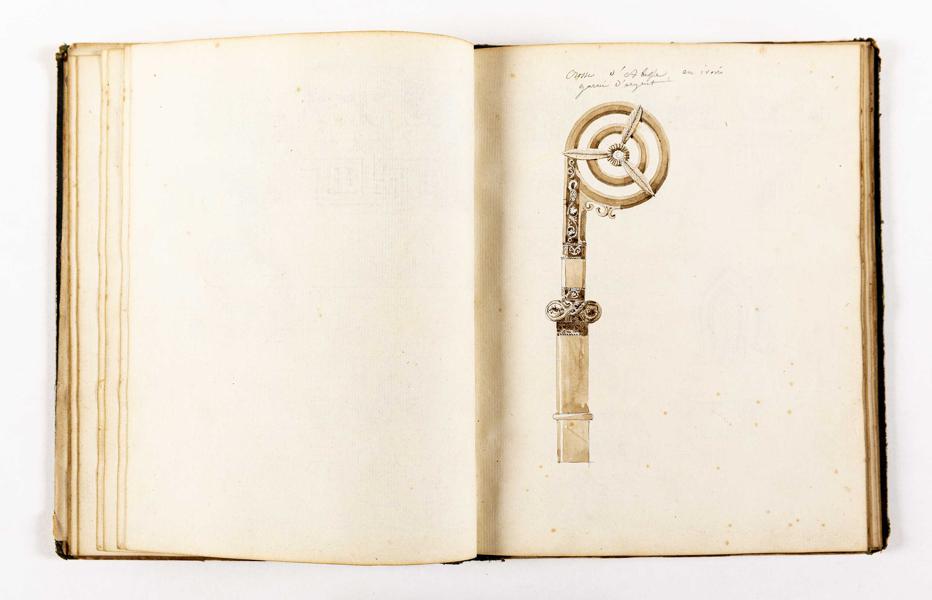 Crosse d'Abbé, en ivoire
garnie d'argent